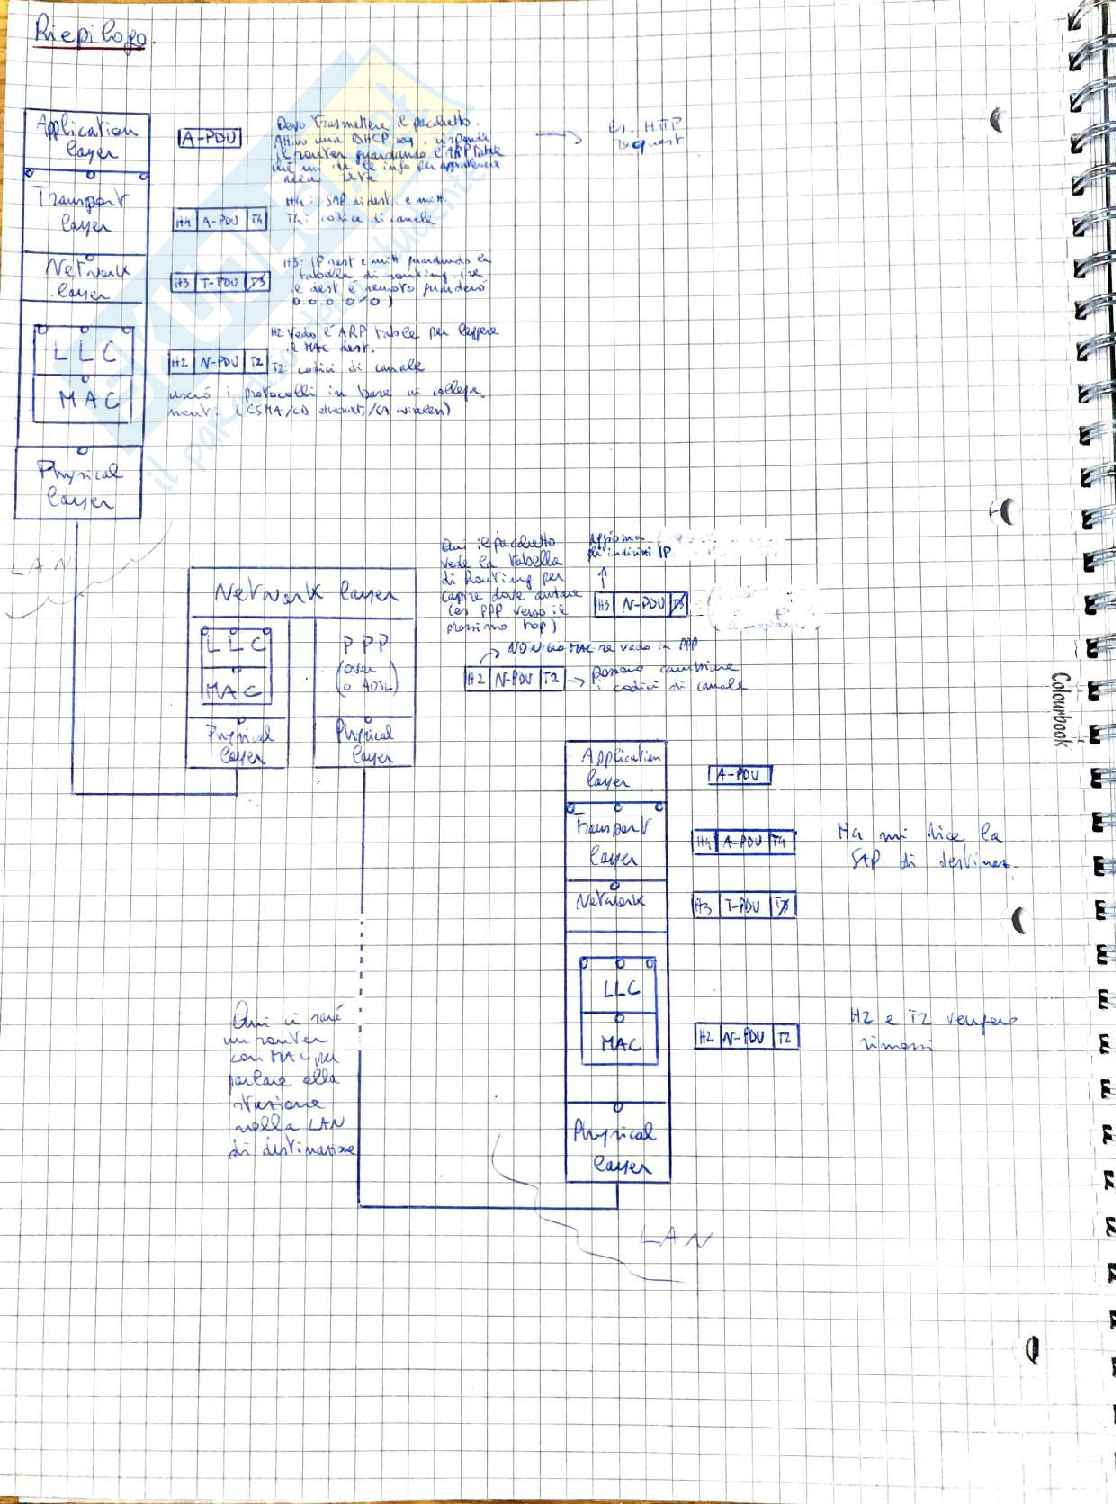 Riepilogo
Application
layer
A-PDU
Devo trasmettere il pacchetto.
DHCP
il router guardando l'ARP table
es. HTTP
request
Transport
layer
H4 A-PDU T4
H4: SAP di dest. e mitt.
T4: codice di canale
Network
layer
H3 T-PDU T3
H3: IP dest e mitt guardando la
tabella di routing (se
la dest è remoto guarderò
0.0.0.0/0)
LLC
MAC
H2 N-PDU T2
H2 vedo l'ARP table per leggere
il MAC dest.
T2: codici di canale
userò i protocolli in base ai collega
menti (CSMA/CD /CA wireless)
Physical
layer
LAN
Network layer
LLC
MAC
Physical
layer
PPP
(
o ADSL)
Physical
layer
Qui il pacchetto
vede la tabella
di routing per
capire dove andare
(es PPP verso il
prossimo hop)
Aggiorna
gli indirizzi IP
H3 N-PDU T3
NON ho MAC se vado in PPP
H2 N-PDU T2
possono cambiare
i codici di canale
Application
layer
A-PDU
Transport
layer
H4 A-PDU T4
H4 mi dice la
SAP di destinaz.
Network
H3 T-PDU T3
LLC
MAC
H2 N-PDU T2
H2 e T2 vengono
rimossi
Physical
layer
Qui ci sarà
un router
con MAC per
parlare alla
stazione
nella LAN
di destinazione
LAN
Colourbook